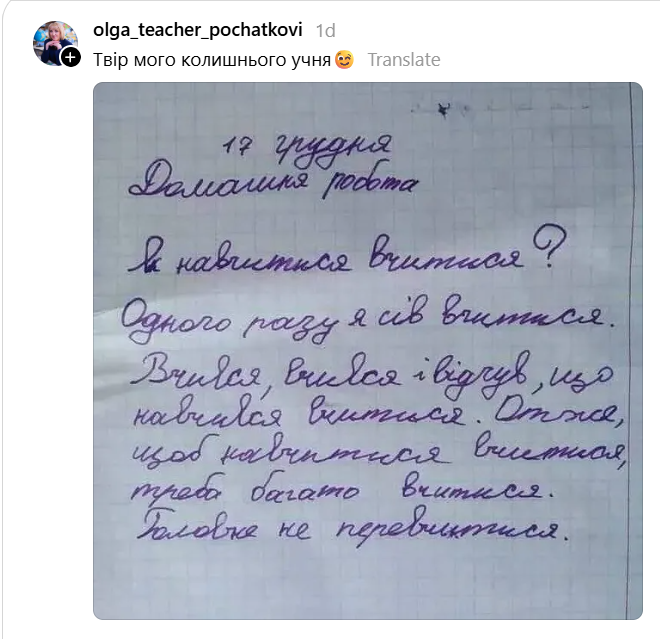 olga_teacher_pochatkovi 1d
Твір мого колишнього учня🥲 Translate
17 грудня
Домашня робота
Як навчитися вчитися?
Одного разу я сів вчитися.
Вчився, вчився і відчув, що
навчився вчитися. Отже,
щоб навчитися вчитися,
треба багато вчитися.
Головне не перевчитися.